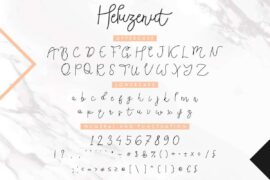 Hekuzenut
UPPERCASE
A B C D E F G H I J K L M N
O P Q R S T U V W X Y Z
LOWERCASE
a b c d e f g h i j k l m n o p
q r s t u v w x y z
NUMERAL AND PUNCTUATION
1 2 3 4 5 6 7 8 9 0